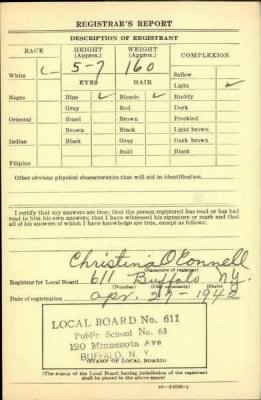 REGISTRAR'S REPORT
DESCRIPTION OF REGISTRANT
RACE HEIGHT (Approx.) WEIGHT (Approx.) COMPLEXION
White ✓ 5-7 160 Sallow
EYES HAIR Light ✓
Negro Blue ✓ Blonde ✓ Ruddy
Gray Red Dark
Oriental Hazel Brown Freckled
Brown Black Light brown
Indian Black Gray Dark brown
Bald Black
Filipino
Other obvious physical characteristics that will aid in identification
I certify that my answers are true; that the person registered has read or has had
read to him his own answers; that I have witnessed his signature or mark and that
all of his answers of which I have knowledge are true, except as follows:
Christina O'Connell
(Signature of registrar)
Registrar for Local Board 611 Buffalo N.Y.
(Number) (City or county) (State)
Date of registration Apr. 27-1942
LOCAL BOARD No. 611
Public School No. 63
120 Minnesota Ave
BUFFALO, N. Y.
(STAMP OF LOCAL BOARD)
(The stamp of the Local Board having jurisdiction of the registrant
shall be placed in the above space)